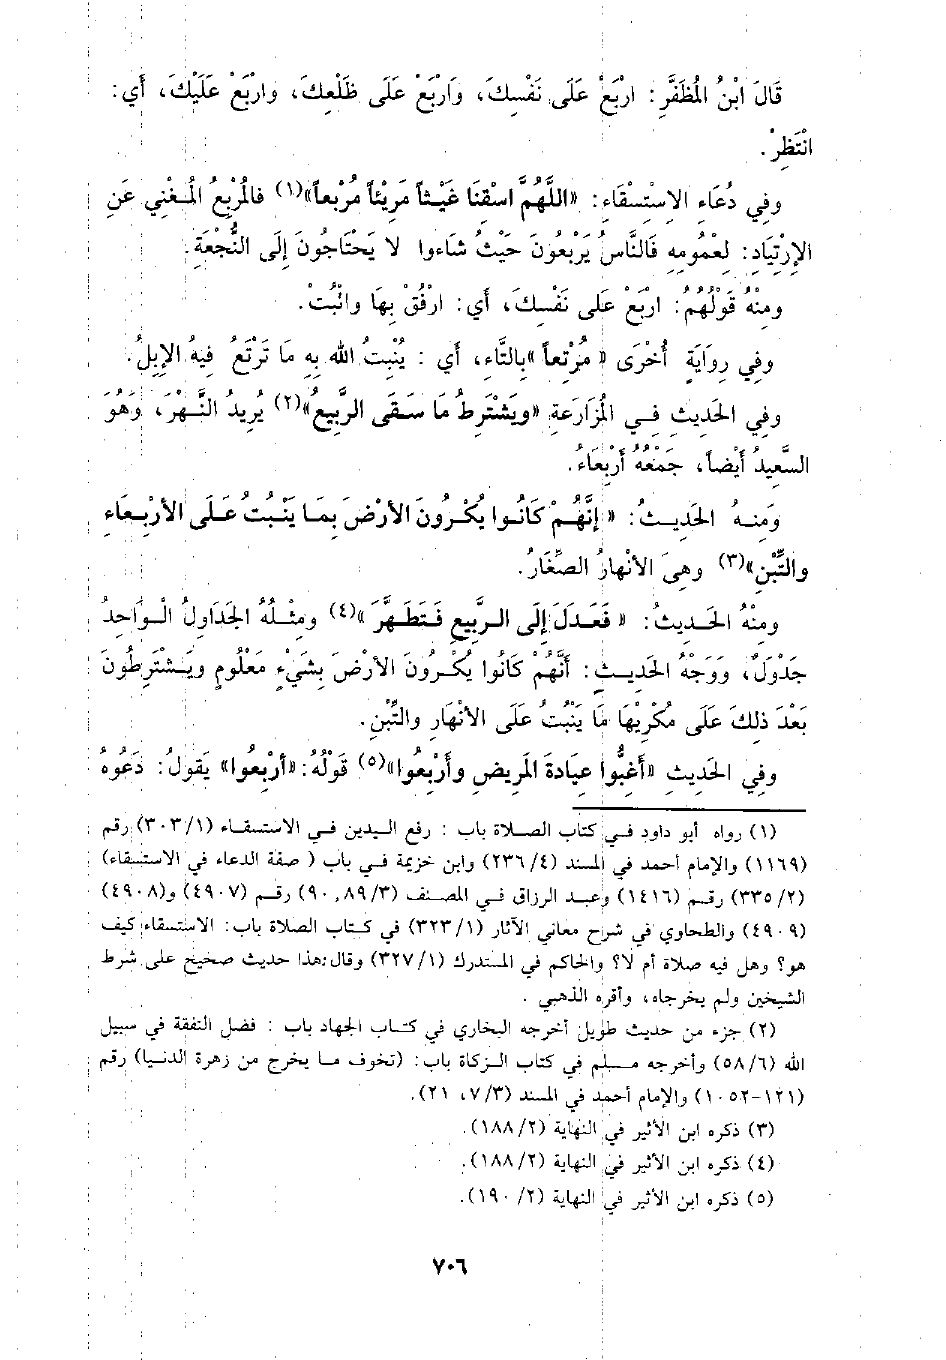 قَالَ ابْنُ المُظَفَّرِ: ارْبَعْ عَلَى نَفْسِكَ، وَارْبَعْ عَلَى ظَلْعِكَ، وارْبَعْ عَلَيْكَ، أَي:
انْتَظِرْ.
وفي دُعَاءِ الاِسْتِسْقَاءِ: «اللَّهُمَّ اسْقِنَا غَيْثاً مَرِيْئاً مُرْبِعاً»(١) فالمُرْبِعُ المُغْنِي عَنِ
الإرْتِيَادِ: لِعُمُومِهِ فَالنَّاسُ يَرْبَعُونَ حَيْثُ شَاءوا لا يَحْتَاجُونَ إِلَى النُّجْعَةِ.
ومِنْهُ قَوْلُهُمْ: ارْبَعْ عَلَى نَفْسِكَ، أَي: ارْفُقْ بِهَا واثْبُتْ.
وفي رِوَايَةٍ أُخْرَى «مُرْتِعاً» بِالتَّاءِ، أَي : يُنْبِتُ الله بِهِ مَا تَرْتَعُ فِيهُ الإِبِلُ.
وفي الحَدِيثِ فـي المُزَارَعَةِ «ويَشْتَرِطُ مَا سَقَى الرَّبِيعُ»(٢) يُرِيدُ النَّهْرَ، وَهُوَ
السَّعِيدُ أَيْضاً، جَمْعُهُ أَرْبِعَاءُ.
وَمِنهُ الحَدِيثُ: «إِنَّهُمْ كَانُوا يُكْرُونَ الأَرْضَ بِمَا يَنْبُتُ عَلَى الأَرْبِعَاءِ
والتِّبْنِ»(٣) وهِيَ الأَنْهارُ الصِّغَارُ.
ومِنْهُ الحَدِيثُ: «فَعَدَلَ إِلَى الرَّبِيعِ فَتَطَهَّرَ»(٤) ومِثْلُهُ الجَدَاوِلُ الْوَاحِدُ
جَدْوَلٌ، وَوَجْهُ الحَدِيثِ: أَنَّهُمْ كَانُوا يُكْرُونَ الأَرْضَ بِشَيْءٍ مَعْلُومٍ ويَشْتَرِطُونَ
بَعْدَ ذلِكَ عَلَى مُكْرِيْهَا مَا يَنْبُتُ عَلَى الأَنْهَارِ والتِّبْنِ.
وفي الحَدِيثِ «أَغِبُّوا عِيَادَةَ المَرِيضِ وأَرْبِعُوا»(٥) قَوْلُهُ: «أَرْبِعُوا» يَقولُ: دَعُوهُ
(١) رواه أبو داود فـي كتاب الصلاة باب : رفع اليدين فـي الاستسقاء (٣٠٣/١) رقم
(١١٦٩) والإمام أحمد في المسند (٢٣٦/٤) وابن خزيمة فـي باب ( صفة الدعاء في الاستسقاء)
(٣٣٥/٢) رقم (١٤١٦) وعبد الرزاق فـي المصنف (٨٩/٣, ٩٠) رقم (٤٩٠٧) و(٤٩٠٨)
(٤٩٠٩) والطحاوي في شرح معاني الآثار (٣٢٣/١) في كتاب الصلاة باب: الاستسقاء كيف
هو؟ وهل فيه صلاة أم لا؟ والحاكم في المستدرك (٣٢٧/١) وقال: هذا حديث صحيح على شرط
الشيخين ولم يخرجاه، وأقره الذهبي .
(٢) جزء من حديث طويل أخرجه البخاري في كتاب الجهاد باب : فضل النفقة في سبيل
الله (٥٨/٦) وأخرجه مسلم في كتاب الزكاة باب: (تخوف ما يخرج من زهرة الدنيا) رقم
(١٢١-١٠٥٢) والإمام أحمد في المسند (٧/٣، ٢١).
(٣) ذكره ابن الأثير في النهاية (١٨٨/٢).
(٤) ذكره ابن الأثير في النهاية (١٨٨/٢).
(٥) ذكره ابن الأثير في النهاية (١٩٠/٢).
٧٠٦